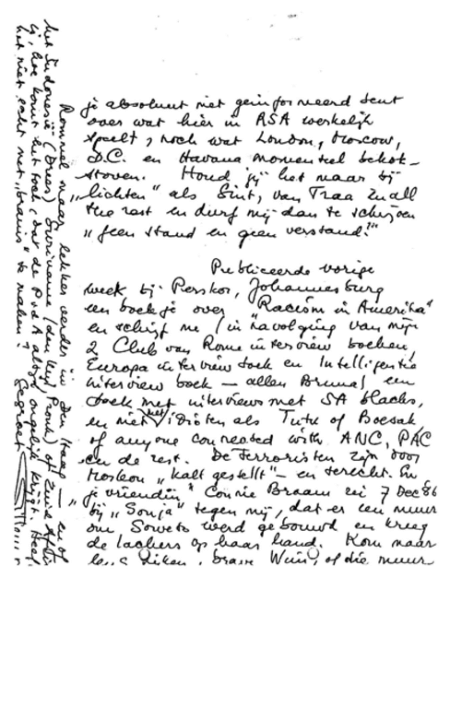 je absoluut niet geïnformeerd bent
over wat hier in RSA werkelijk
speelt, noch wat London, Moscow,
D.C. en Havana momenteel bekok-
stoven. Houd jij het maar bij
„lichten" als Sint, van Traa en all
the rest en durf mij dan te schrijven
„geen stand en geen verstand!"
Publiceerde vorige
week bij Perskor, Johannesburg
een boekje over "Racism in Amerika"
en schrijf nu (in navolging van mijn
2 Club van Rome interview boeken,
Europa interview boek en Intelligentie
interview boek — allen Bruna) een
boek met interviews met SA blacks,
en niet met idioten als Tutu of Boesak
of anyone connected with ANC, PAC
en de rest. De terroristen zijn door
Moskou „kalt gestellt" — en terecht. En
je vriendin Connie Braam zei 7 Dec '86
bij „Sonja" tegen mij, dat er een muur
om Soweto werd gebouwd en kreeg
de lachers op haar hand. Kom maar
kijken, brave Wim, of die muur
Rommel maar lekker verder in Den Haag — en of
het Indonesië (Drees) Suriname (den Uyl, Pronk) of Zuid Afrika
is, hoe komt het toch, dat de PvdA altijd ongelijk krijgt. Heeft
het niet echt met „brains" te maken?
Gegroet